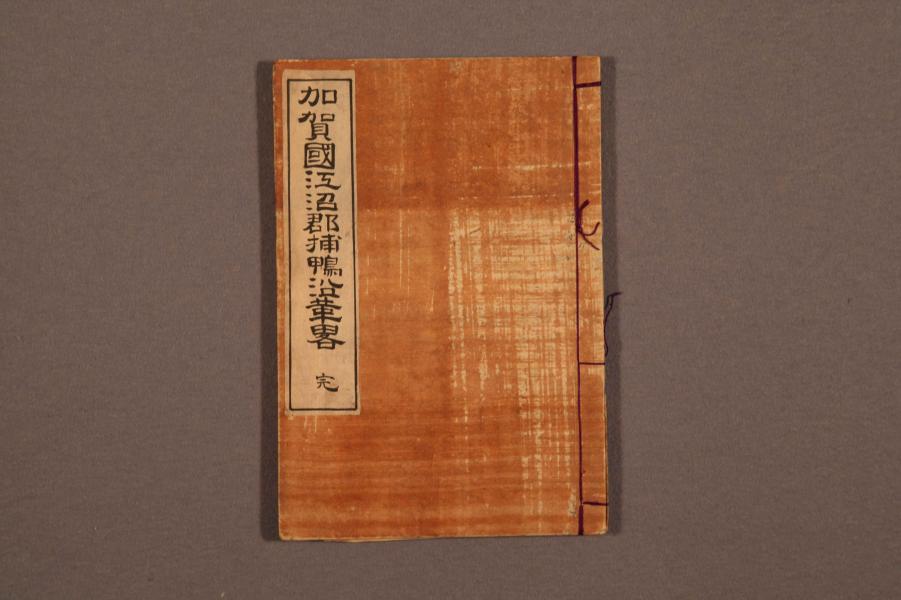 加賀國江沼郡捕鴨沿革畧
完